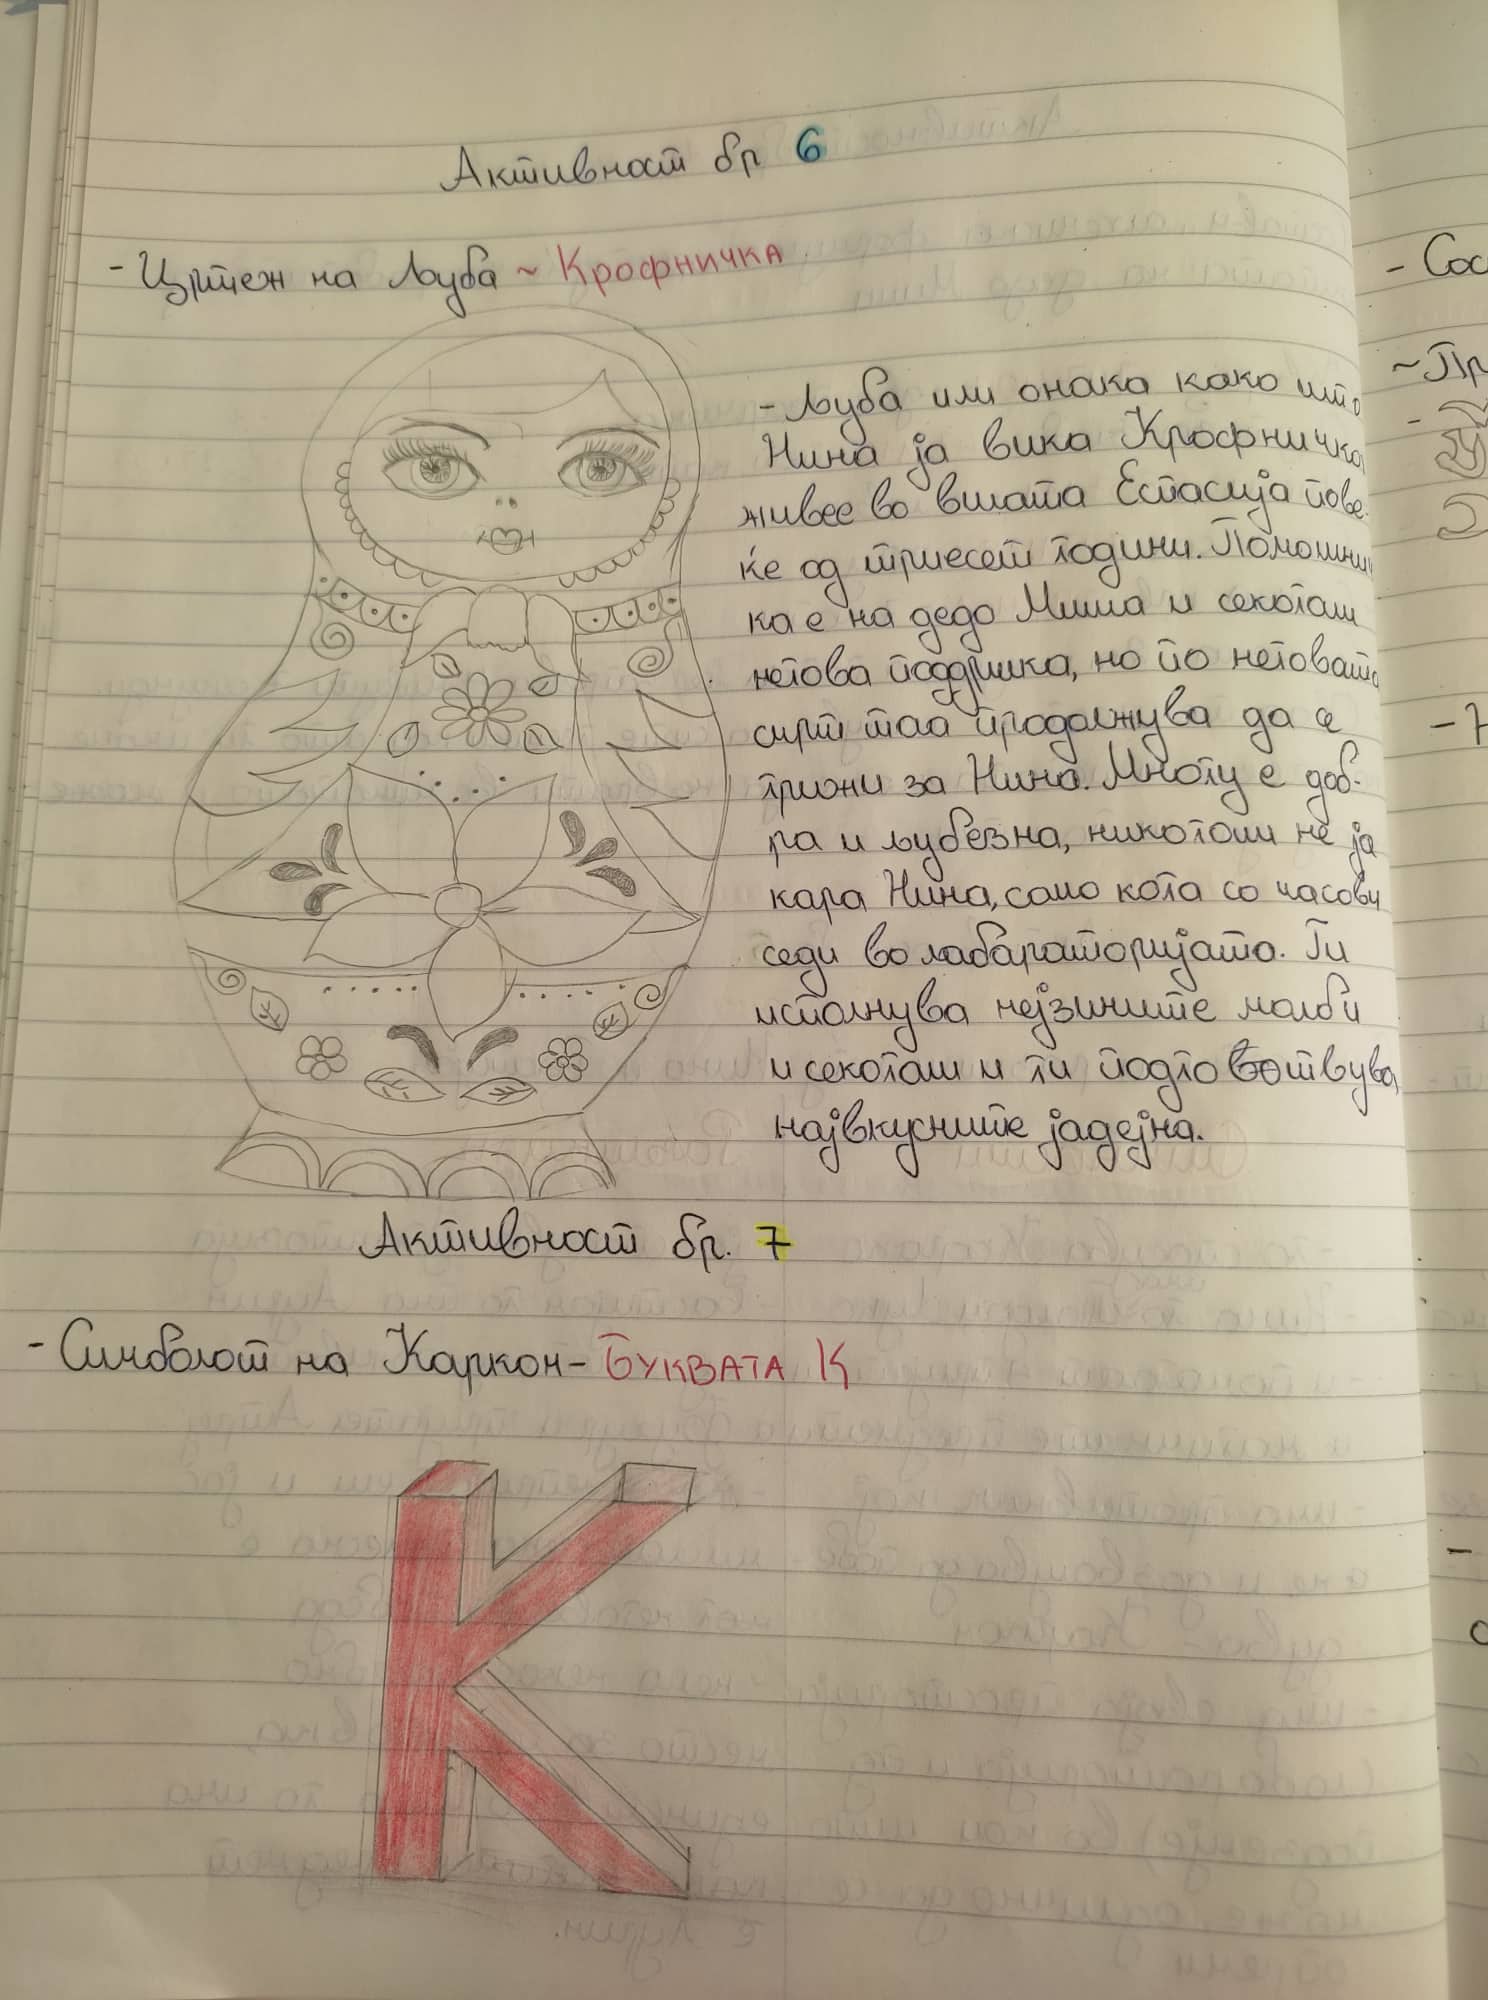 Активност бр 6
- Цртеж на Љуба ~ Крофничка
- Љуба или онака како што
Нина ја вика Крофничка
живее во вилата Естасија пове-
ќе од триесет години. Помошни
ка е на дедо Миша и секогаш
негова поддршка, но по неговата
смрт таа продолжува да се
грижи за Нина. Многу е доб-
ра и љубезна, никогаш не ја
кара Нина, само кога со часови
седи во лабараторијата. Ги
исполнува нејзините молби
и секогаш и ги подготвува
највкусните јадејна.
Активност бр. 7
- Симболот на Каркон - БУКВАТА К
К
- Сос
~ Пр
-
-